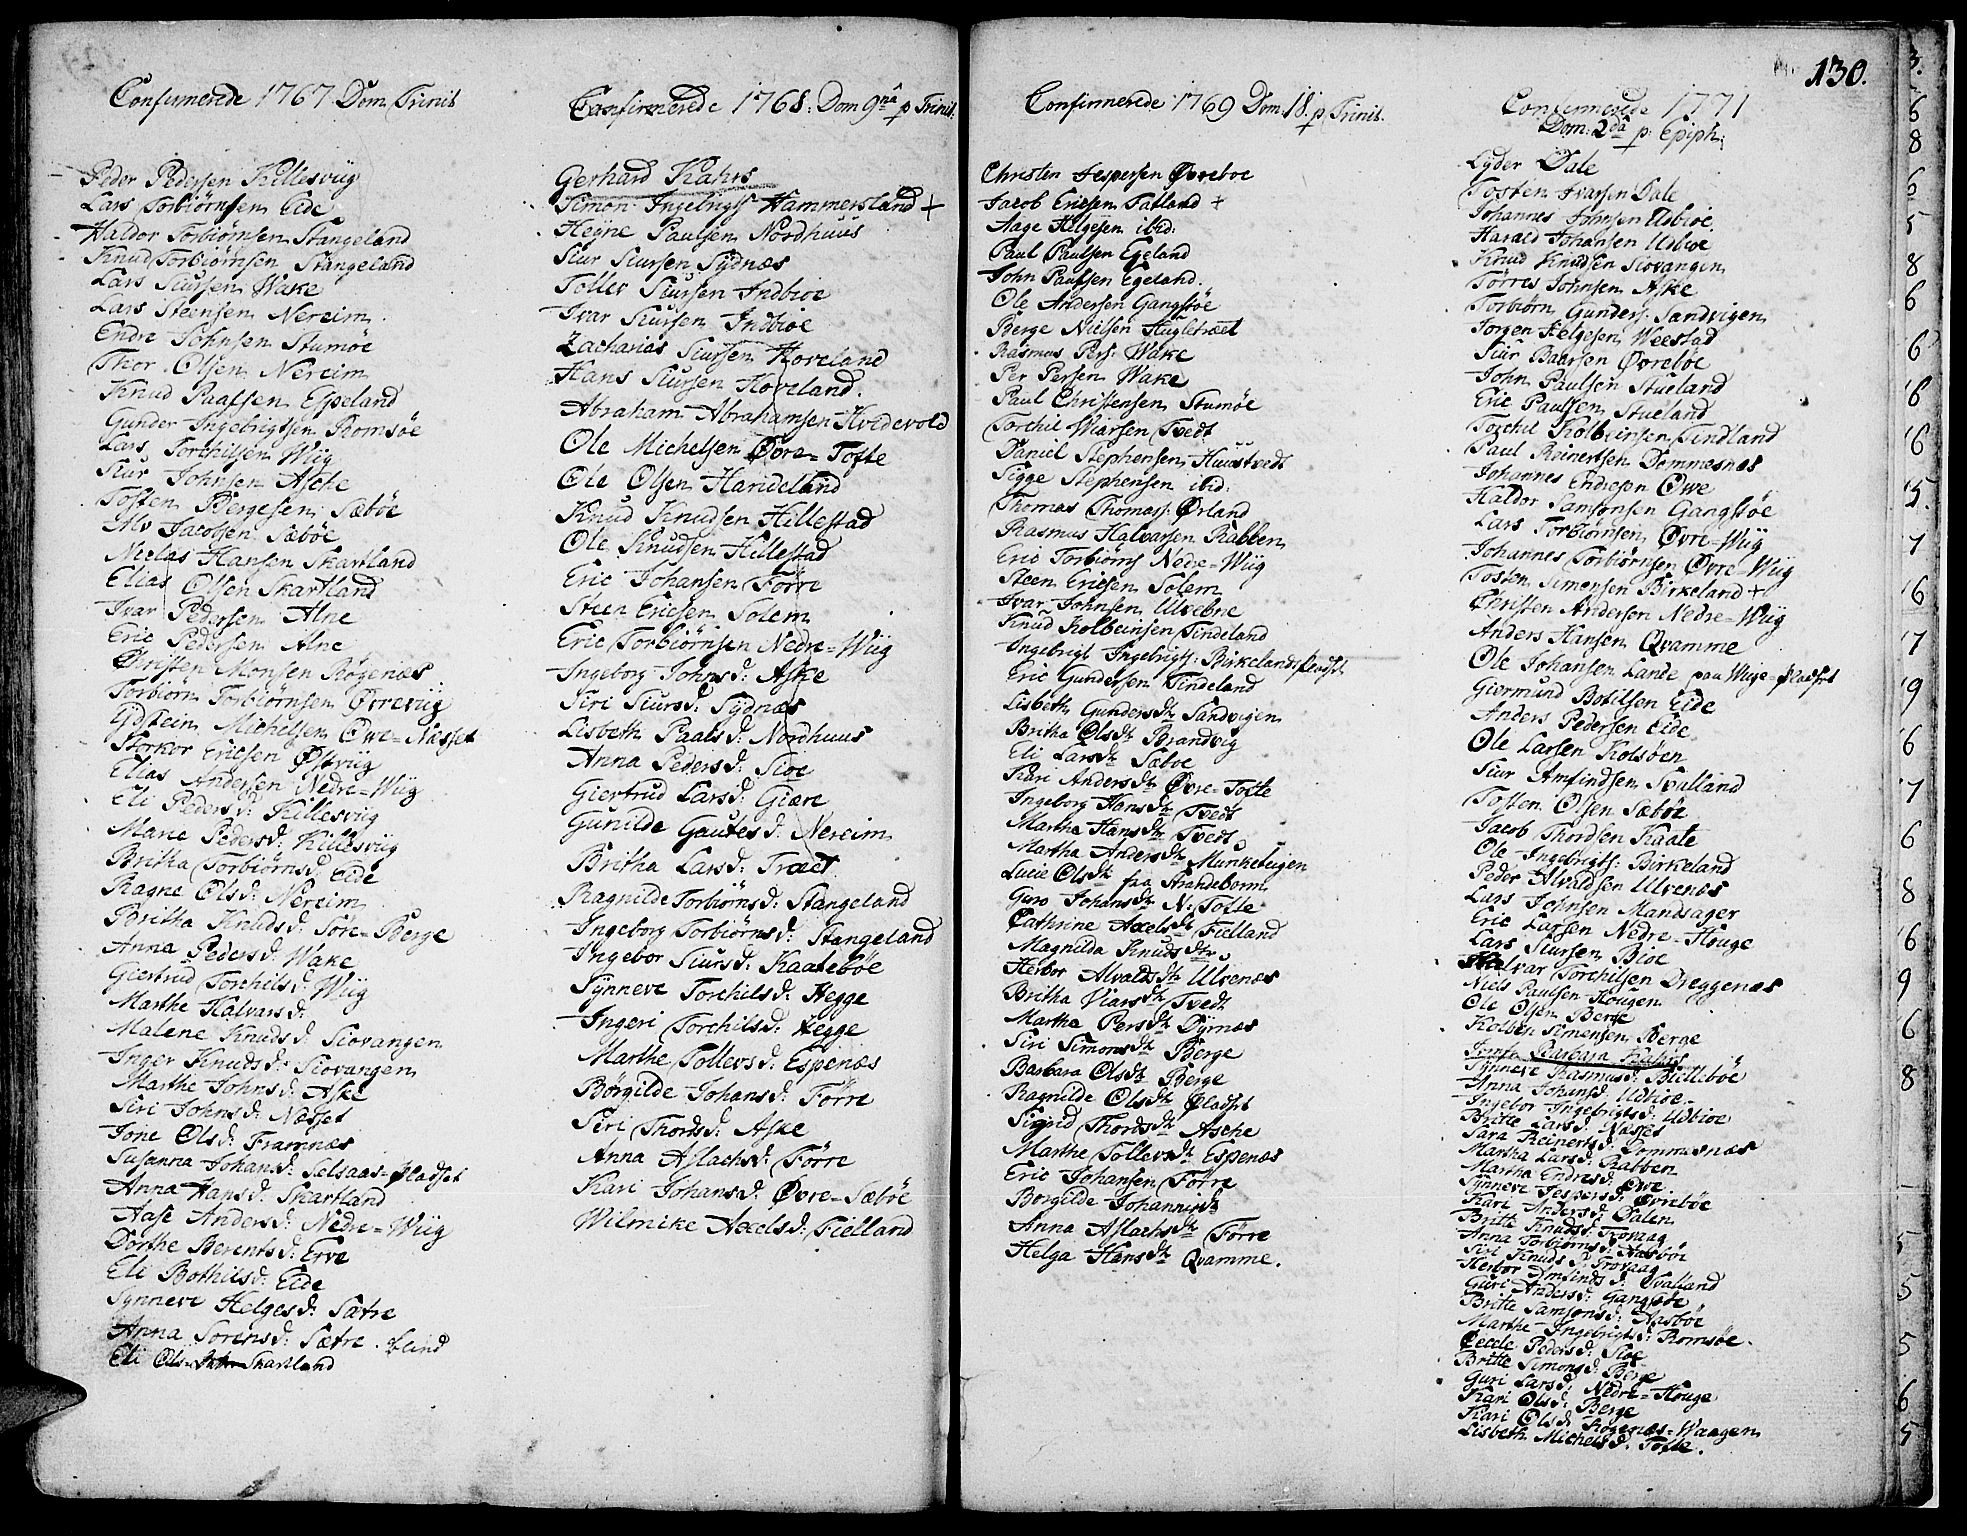 Confirmerede 1767 Dom. Trinit
Peder Pedersen Killesviig
Lars Torbiørnsen Eide
Haldor Torbiørnsen Stangeland
Knud Torbiørnsen Stangeland
Lars Siursen Wake
Lars Steensen Nereim
Endre Johnsen Stumøe
Thor Olsen Nereim
Knud Paalsen Espeland
Gunder Ingebrigtsen Romsøe
Lars Torchilsen Wiig
Siur Johnsen Aske
Tosten Bergesen Sæbøe
Alv Jacobsen Sæbøe
Nielas Hansen Skartland
Elias Olsen Skartland
Ivar Pedersen Alne
Eric Pedersen Alne
Christen Monsen Røgenæs
Torbiørn Torbiørnsen Øvreviig
Gidstein Michelsen Owe-Næsset
Storkor Ericsen Østviig
Elias Andersen Nedre-Wiig
Eli Pedersd: Killesviig
Marie Pedersd: Killesviig
Britha Torbiørnsd: Eide
Ragne Olsd: Nereim
Britha Knudsd: Søre-Berge
Anna Pedersd: Wake
Giertrud Torchilsd: Wiig
Marthe Halvarsd:
Malene Knudsd: Siovangen
Inger Knudsd: Siovangen
Marthe Johnsd: Aske
Siri Johnsd: Næsset
Jone Olsd: Framnæs
Susanna Johansd: Selsaas-Pladset
Anna Hansd: Skartland
Aase Andersd: Nedre-Wiig
Dorthe Berentsd: Erve
Eli Bothilsd: Eide
Synneve Helgesd: Sætre
Anna Sørensd: Sætre. blind
Eli Ols Skartland
Confirmerede 1768: Dom 9na p Trinit:
Gerhard Kahrs
Simon Ingebrigts Hammersland +
Heyne Paulsen Nordhuus
Siur Siursen Sydnæs
Tollev Siursen Indbioe
Ivar Siursen Indbioe
Zacharias Siursen Hoveland
Hans Siursen Hoveland.
Abraham Abrahamsen Hvedevold
Ole Michelsen Øvre-Tofte
Ole Olsen Handeland
Knud Knudsen Hillestad
Ole Knudsen Hillestad
Eric Johansen Førre
Steen Ericsen Solem
Eric Torbiørnsen Nedre-Wiig
Ingeborg Johnsd: Aske
Siri Siursd: Sydnæs
Lisbeth Paalsd: Nordhuus
Anna Pedersd: Sioe
Giertrud Larsd: Giære
Gunilde Gautesd: Nereim
Britha Larsd: Træet
Ragnilde Torbiørnsd: Stangeland
Ingeborg Torbiørnsd: Stangeland
Ingebor Siursd: Kaatebøe
Synneve Torchilsd: Hegge
Ingeri Torchilsd: Hegge
Marthe Tollevsd: Espenæs
Børgilde Johansd: Førre
Siri Thordsd: Aske
Anna Aslachsd: Førre
Kari Johansd: Øvre-Sæbøe
Wilmike Axelsd: Fielland
Confirmerede 1769 Dom 18. p Trinit.
Christen Jespersen Øvreboe
Jacob Ericsen Tatland +
Aage Helgesen ibid:
Paul Paulsen Egeland
John Paulsen Egeland.
Ole Andersen Gangstøe
Berge Nielsen Hugletræet
Rasmus Pers: Wake
Per Persen Wake
Paul Christensen Stumøe
Torchil Wiarsen Tvedt
Daniel Stephensen Huustvedt
Sigge Stephensen ibid:
Thomas Thomass: Ørland
Rasmus Halvarsen Rabben
Eric Torbiørns Nedre-Wiig
Steen Ericsen Solem
Ivar Johnsen Ulvebne
Knud Kolbeinsen Tindeland
Ingebrigt Ingebrigts: Birkelandspladset
Eric Gundersen Tindeland
Lisbeth Gundersdtr Sandvigen
Britha Olsdtr Brandvig
Eli Larsdtr Sæboe
Kari Andersdtr Øvre-Tofte
Ingeborg Hansdtr Tvedt
Martha Hansdtr Tvedt
Martha Andersdtr Munkebeigen
Lucie Olsdtr fra Strandeborm
Guro Johansdtr N: Tofte
Cathrine Axelsdtr Fielland
Magnilda Knudsdtr
Herbor Alvaldsdtr Ulvenæs
Britha Viarsdtr Tvedt
Martha Persdtr Dyrnæs
Siri Simonsdtr Berge
Barbara Olsdtr Berge
Ragnilde Olsdtr Pladset
Sigrid Thordsdtr Asche
Marthe Tollevsdtr Espenæs
Eric Johansen Førre
Borgilde Johannisdtr
Anna Aslachsdtr Førre
Helga Hansdtr Qvamme.
130.
Confirmerede 1771
Dom: 2da p. Epiph:
Lyder Dale
Tosten Ivarsen Dale
Johannes Johnsen Udbioe.
Harald Johansen Udbioe
Knud Knudsen Siovangen
Tørres Johnsen Aske
Torbiørn Gunders: Sandvigen
Jorgen Helgesen Weestad
Siur Baarsen Øvrebøe
John Paulsen Stueland
Eric Paulsen Stueland
Torchil Kolbeinsen Tindland
Paul Reinertsen Dommesnæs
Johannes Endresen Owe
Haldor Samsonsen Gangstøe
Lars Torbiørnsen Øvre-Wiig
Johannes Torbiørnsen Øvre-Wiig
Tosten Simonsen Birkeland +
Christen Andersen Nedre-Wiig
Anders Hansen Qvamme
Ole Johansen Lande paa Wiige-Pladset
Giermund Botilsen Eide
Anders Pedersen Eide
Ole Larsen Kolsøen
Siur Amfindsen Svalland
Tosten Olsen Sæbøe
Jacob Thordsen Kaate
Ole Ingebrigts: Birkeland
Peder Alvaldsen Ulvenæs
Lars Johnsen Mandsager
Eric Larsen Nedre-Houge
Lars Siursen Bioe
Halvar Torchilsen Dreggenæs
Niels Paulsen Hougen
Ole Olsen Berge
Kolben Simensen Berge
Barbara Kahrs
Synneve Rasmusd: Biellebøe
Anna Johansd: Udbioe
Ingebor Ingebrigtsd: Udbioe
Britte Larsd: Næsset
Sara Reinertsd: Dommesnæs
Martha Larsd: Rabben
Martha Endresd: Owe
Synneve Jespersd: Øvrebøe
Kari Andersd: Dalen
Britte Knudsd: Trovaag
Anna Torbiørnsd: Aasbøe
Siri Knudsd: Trovaag
Herbor Omfindsd: Svalland
Guri Andersd: Gangstøe
Britte Samsonsd: Næsbøe
Marthe Ingebrigtsd: Romsøe.
Cecele Pedersd: Sioe
Britte Simonsd: Berge
Guri Larsd: Nedre-Houge
Kari Olsd: Berge
Kari Olsd: Røgenæs-Waagen
Lisbeth Michelsd: Tofte.